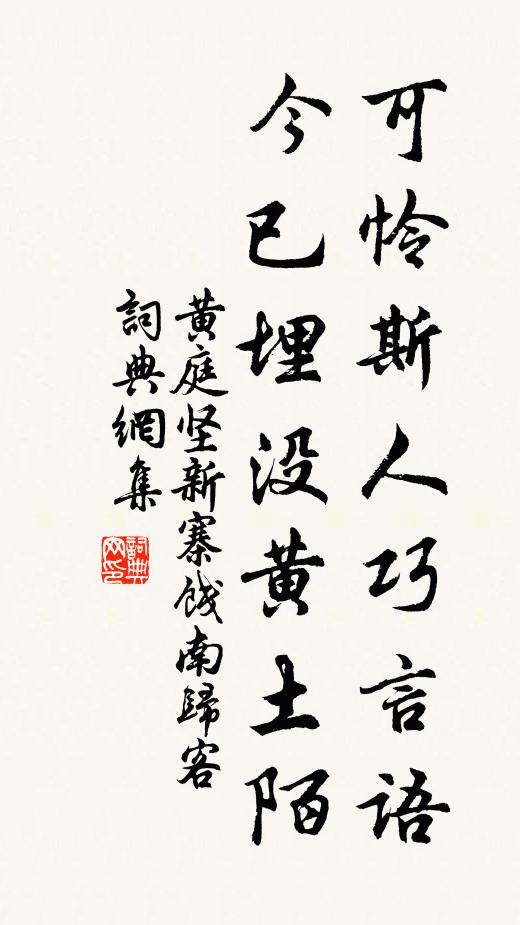 可怜斯人巧言語
今已埋没黄土陌
黄庭坚新寨餞南歸客
詞典網集
詞典網印